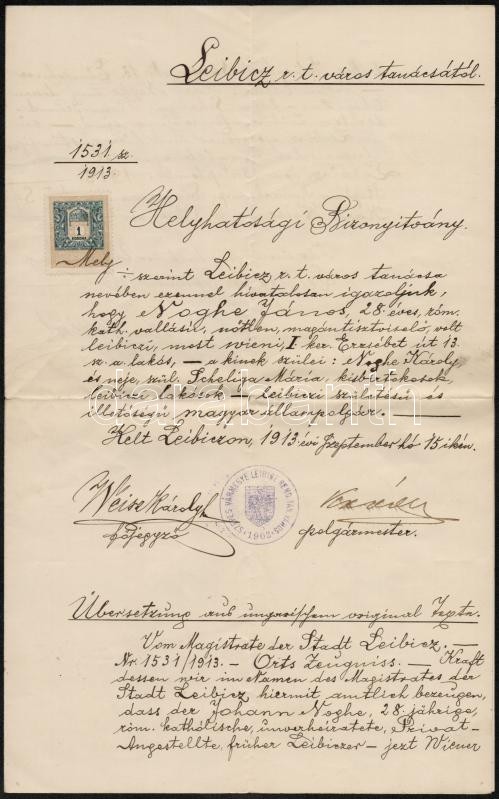 Leibicz r. t. város tanácsától.
1531 sz.
1913.
1
KORONA
Helyhatósági Bizonyitvány.
Mely
szerint Leibicz r. t. város tanácsa
nevében ezennel hivatalosan igazoljuk,
hogy Noghe János, 28 éves, róm.
kath. vallású, nőtlen, magántisztviselő, volt
leibiczi, most wieni, I ker. Erzsébet út 13.
sz. a. lakós, – a kinek szülei: Noghe Károly
és neje, szül. Scheliga Mária, kisbirtokosok,
leibiczi lakósok – leibiczi születésű és
illetőségű magyar állampolgár. –
Kelt Leibiczon, 1913 évi Szeptember hó 15 ikén.
Weisz Károly
főjegyző
polgármester.
SZEPES VÁRMEGYE LEIBICZ REND. TAN. VÁROS
1902
Übersetzung aus ungarischem original Texte.
Vom Magistrate der Stadt Leibicz. –
Nr. 1531/1913. – Orts Zeugniss. – Kraft
dessen wir im Namen des Magistrates der
Stadt Leibicz hiermit amtlich bezeugen,
dass der Johann Noghe, 28 jährige,
röm. kathólische, unverheiratete, Privat-
Angestellte, früher Leibiczer – jezt Wiener
darabanth.com